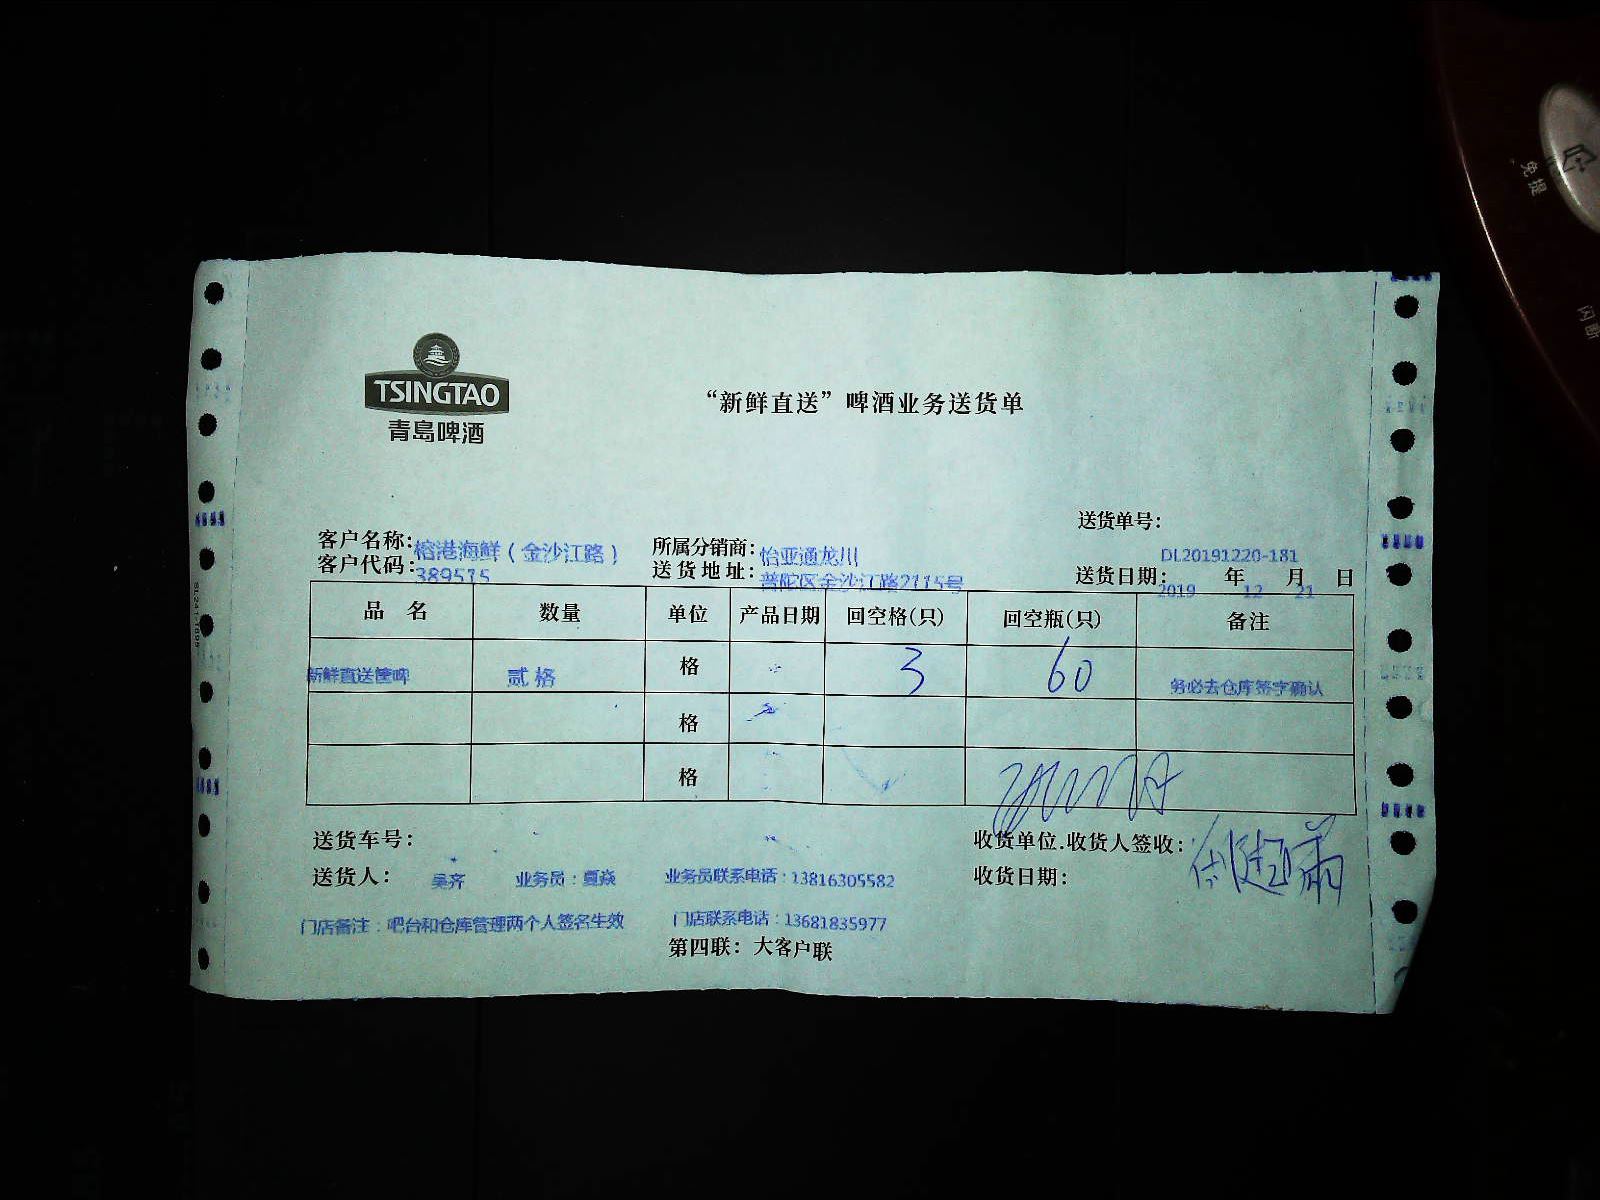 TSINGTAO
青島啤酒
“新鲜直送”啤酒业务送货单
送货单号：
DL20191220-181
客户名称：榕港海鲜（金沙江路） 所属分销商：怡亚通龙川
客户代码：389515 送货地址：普陀区金沙江路2115号 送货日期：2019年12月21日
品 名 数量 单位 产品日期 回空格(只) 回空瓶(只) 备注
新鲜直送筐啤 贰格 格 3 60 务必去仓库签字确认
格
格
送货车号： 收货单位.收货人签收：
送货人： 吴齐 业务员：夏焱 业务员联系电话：13816305582 收货日期：
门店备注：吧台和仓库管理两个人签名生效 门店联系电话：13681835977
第四联：大客户联
免提
闪断